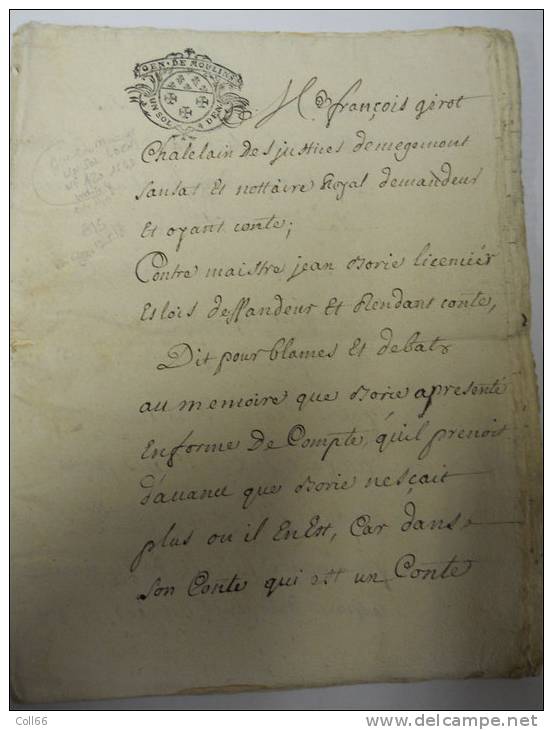 GEN · DE MOULINS
UN SOL 4 DEN
Me françois gerot
Chatelain des justices demegemont
sansat Et nottaire Royal demandeur
Et oyant conte;
Contre maistre jean Borie licenciér
Eslois deffandeur Et Rendant conte,
Dit pour blames Et debats
au memoire que Borie apresenté
Enforme De Compte, qu'il prenoit
d'auance que Borie nesçait
plus ou il EnEst, Car dans
son Conte qui est un Conte
Coll66
www.delcampe.net